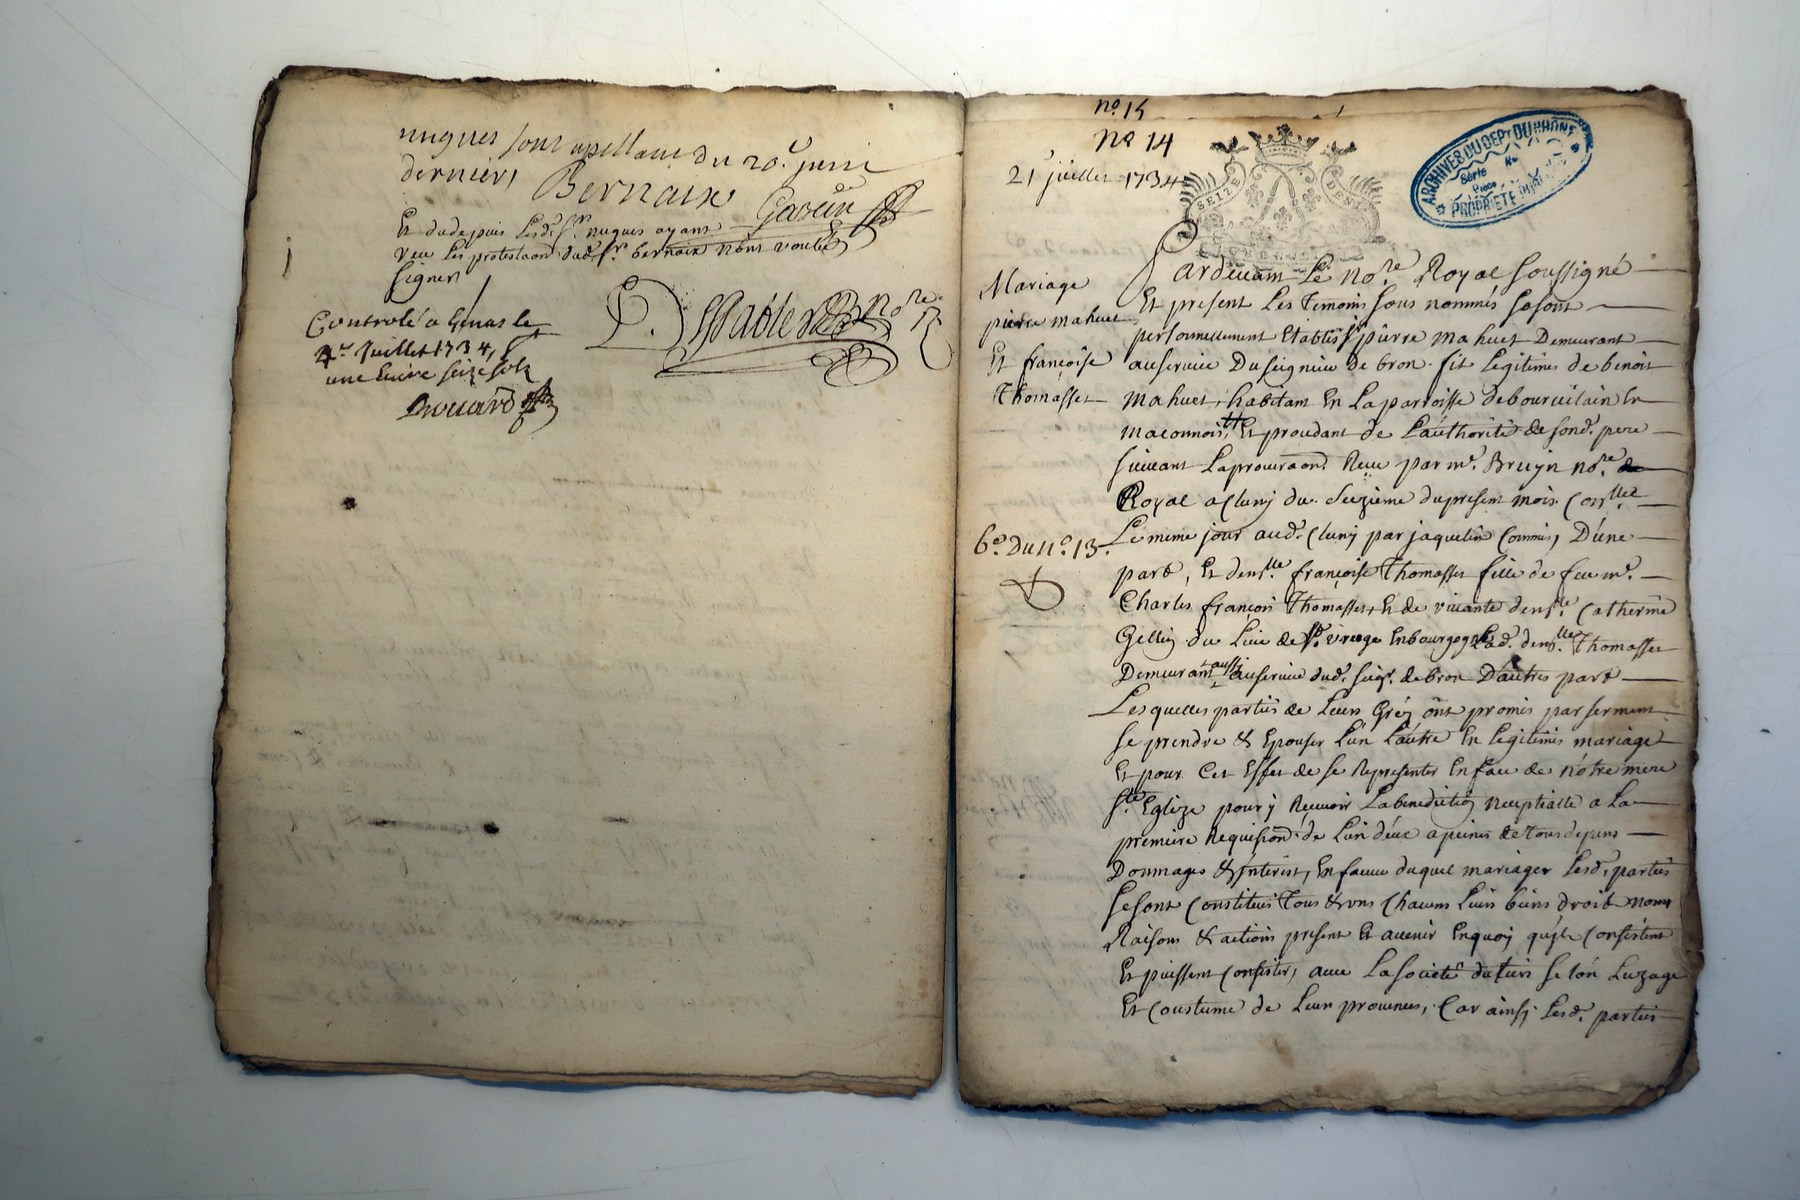 nugues sont apellant du 20.e juin
dernier,
Bernaix Gavin
Et dudepuis Lesd. Srs. nugues ayant
veu Les protestaon. dud. Sr. bernaix n'ont voulu
signer
Controlé a Genas le
4er Juillet 1734,
une Livre seize sols
Drouard
no. 15
No 14
21 juillet 1734
SEIZE DENIE
ARCHIVES DU DEPt DU RHONE
Série No
Pièce
PROPRIETE PUBLIQUE
Mariage
pierre mahuet
Et françoise
Thomasset
6.e Du n.o 13.
Pardevant Le no.re Royal soussigné
Et present Les Temoins sous nommés se sont
personnellement Etablis Sr. pierre mahuet Demeurant
au service Du seigneur de bron fils Legitimes de benoit
mahuet, habitant En La parroisse de bourvilain En
maconnois, Et procedant de L'authorité de sond. pere
suivant La procuraon. Reçue par me. Bruyn no.re
Royal a Cluny du seizieme du present mois Con.llee
Le meme jour aud. Cluny par jaquelin Commis, D'une
part, Et dem.lle françoise Thomasset fille de feu me.
Charles françois Thomasset, Et de vivante dem.lle Catherine
Gelley du Lieu de St. vrage En bourgogne Lad. dem.lle Thomasset
Demeurant aussi au service dud. seigr. de bron D'autres part
Lesquelles parties de Leurs Gréz ont promis par serment
se prendre & Epouser L'un L'autre En legitimes mariage
Et pour Cet Effet de se Representer En face de notre mere
Ste. Eglize pour y Recevoir La benediction nuptialle a La
premiere Requision. de L'un d'eux a peines de tous depens
Dommages & interest, En faveur duquel mariager Lesd. parties
se sont Constitués Tous & uns Chacuns Leurs biens droits noms
Raisons & actions present Et avenir En quoy qu'ils Consistent
Et puissent Consister, avec La societé du tiers selon Luzage
Et Coustume de Leur provences, Car ainsi Lesd. parties